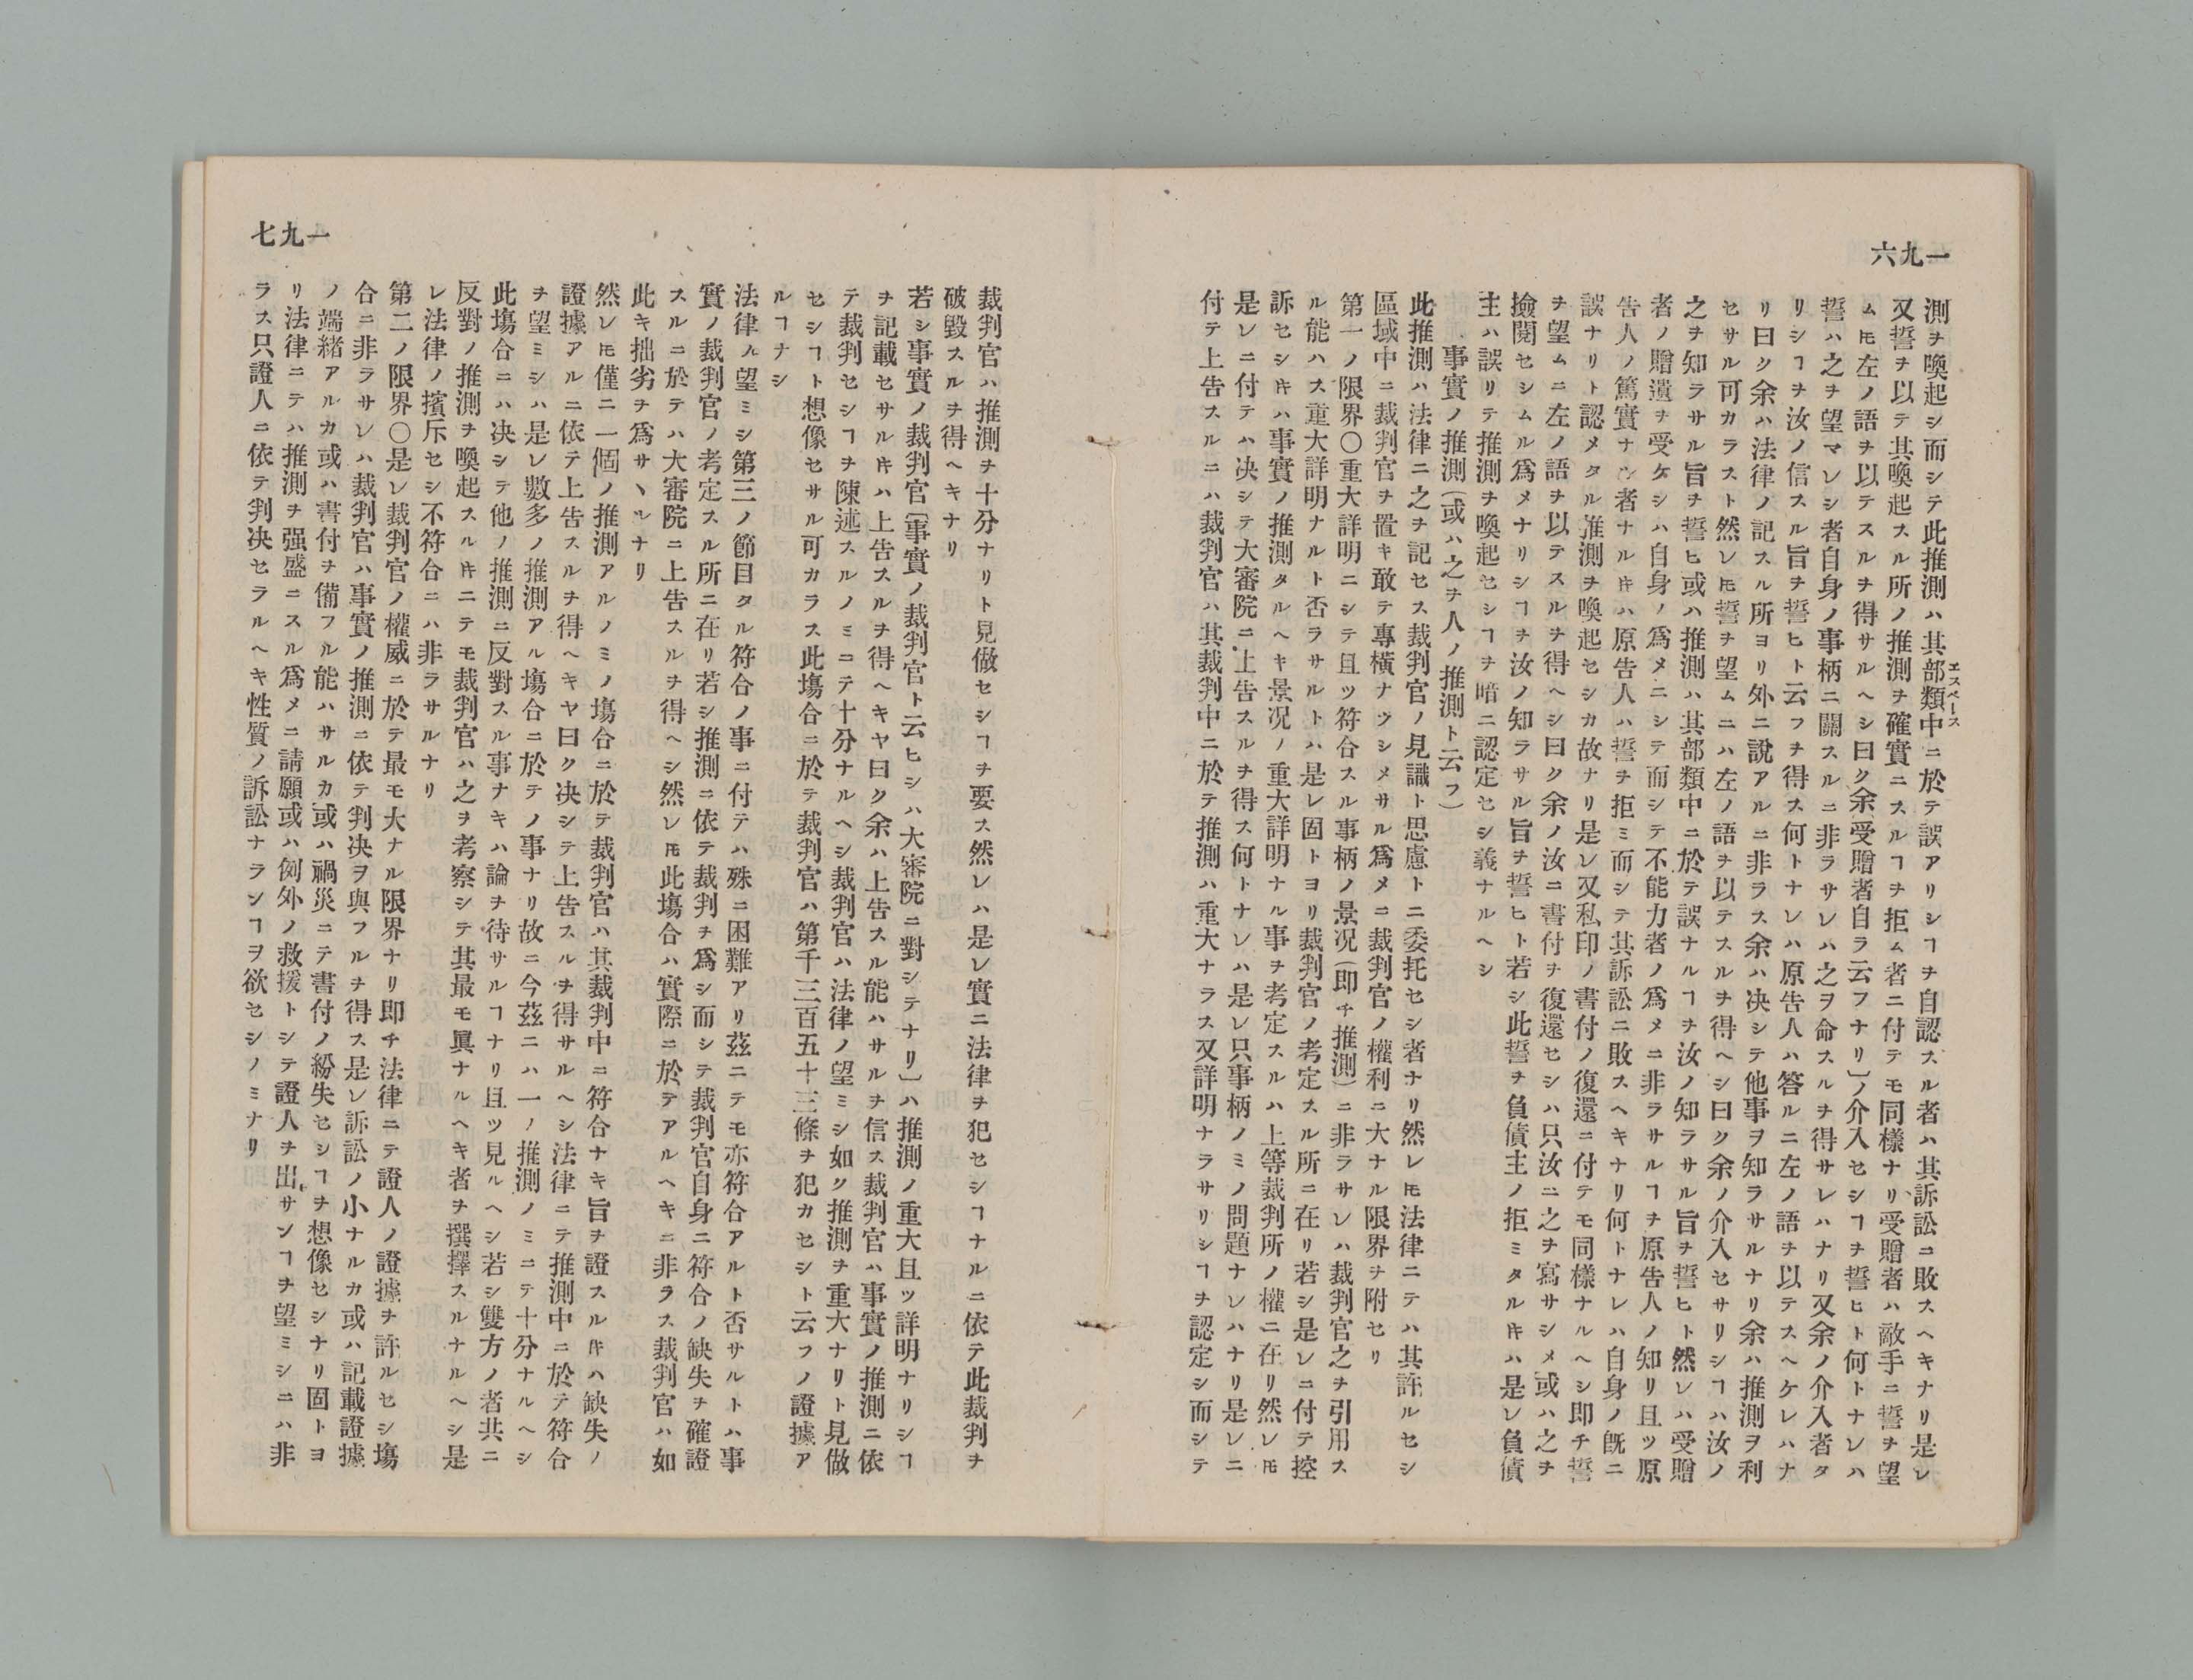 一九六
測ヲ喚起シ而シテ此推測ハ其部類中ニ於テ誤アリシヿヲ自認スル者ハ其訴訟ニ敗スヘキナリ是レ
エスペース
又誓ヲ以テ其喚起スル所ノ推測ヲ確實ニスルヿヲ拒ム者ニ付テモ同樣ナリ受贈者ハ敵手ニ誓ヲ望
ムㇳモ左ノ語ヲ以テスルヲ得サルヘシ曰ク余受贈者自ラ云フナリ〕ノ介入セシヿヲ誓ヒト何トナレハ
誓ハ之ヲ望マレシ者自身ノ事柄ニ關スルニ非ラサレハ之ヲ命スルヲ得サレハナリ又余ノ介入者タ
リシヿヲ汝ノ信スル旨ヲ誓ヒト云フヲ得ス何トナレハ原告人ハ答ルニ左ノ語ヲ以テスヘケレハナ
リ曰ク余ハ法律ノ記スル所ヨリ外ニ說アルニ非ラス余ハ决シテ他事ヲ知ラサルナリ余ハ推測ヲ利
セサル可カラスト然レㇳモ誓ヲ望ムニハ左ノ語ヲ以テスルヲ得ヘシ曰ク余ノ介入セサリシヿハ汝ノ
之ヲ知ラサル旨ヲ誓ヒ或ハ推測ハ其部類中ニ於テ誤ナルヿヲ汝ノ知ラサル旨ヲ誓ヒト然レハ受贈
者ノ贈遺ヲ受ケシハ自身ノ爲メニシテ而シテ不能力者ノ爲メニ非ラサルヿヲ原告人ノ知リ且ツ原
告人ノ篤實ナル者ナルキハ原告人ハ誓ヲ拒ミ而シテ其訴訟ニ敗スヘキナリ何トナレハ自身ノ旣ニ
誤ナリト認メタル推測ヲ喚起セシカ故ナリ是レ又私印ノ書付ノ復還ニ付テモ同樣ナルヘシ即チ誓
ヲ望ムニ左ノ語ヲ以テスルヲ得ヘシ曰ク余ノ汝ニ書付ヲ復還セシハ只汝ニ之ヲ寫サシメ或ハ之ヲ
撿閱セシムル爲メナリシヿヲ汝ノ知ラサル旨ヲ誓ヒト若シ此誓ヲ負債主ノ拒ミタルキハ是レ負債
主ハ誤リテ推測ヲ喚起セシヿヲ暗ニ認定セシ義ナルヘシ
事實ノ推測(或ハ之ヲ人ノ推測ト云フ)
此推測ハ法律ニ之ヲ記セス裁判官ノ見識ト思慮トニ委托セシ者ナリ然レㇳモ法律ニテハ其許ルセシ
區域中ニ裁判官ヲ置キ敢テ專橫ナラシメサル爲メニ裁判官ノ權利ニ大ナル限界ヲ附セリ
第一ノ限界〇重大詳明ニシテ且ツ符合スル事柄ノ景况(即チ推測)ニ非ラサレハ裁判官之ヲ引用ス
ル能ハス重大詳明ナルト否ラサルトハ是レ固トヨリ裁判官ノ考定スル所ニ在リ若シ是レニ付テ控
訴セシキハ事實ノ推測タルヘキ景况ノ重大詳明ナル事ヲ考定スルハ上等裁判所ノ權ニ在リ然レㇳモ
是レニ付テハ决シテ大審院ニ上告スルヲ得ス何トナレハ是レ只事柄ノミノ問題ナレハナリ是レニ
付テ上告スルニハ裁判官ハ其裁判中ニ於テ推測ハ重大ナラス又詳明ナラサリシヿヲ認定シ而シテ
一九七
裁判官ハ推測ヲ十分ナリト見做セシヿヲ要ス然レハ是レ實ニ法律ヲ犯セシヿナルニ依テ此裁判ヲ
破毀スルヲ得ヘキナリ
若シ事實ノ裁判官〔事實ノ裁判官ト云ヒシハ大審院ニ對シテナリ〕ハ推測ノ重大且ツ詳明ナリシヿ
ヲ記載セサルキハ上告スルヲ得ヘキヤ曰ク余ハ上告スル能ハサルヲ信ス裁判官ハ事實ノ推測ニ依
テ裁判セシヿヲ陳述スルノミニテ十分ナルヘシ裁判官ハ法律ノ望ミシ如ク推測ヲ重大ナリト見做
セシヿト想像セサル可カラス此塲合ニ於テ裁判官ハ第千三百五十三條ヲ犯カセシト云フノ證據ア
ルヿナシ
法律ノ望ミシ第三ノ節目タル符合ノ事ニ付テハ殊ニ困難アリ茲ニテモ亦符合アルト否サルトハ事
實ノ裁判官ノ考定スル所ニ在リ若シ推測ニ依テ裁判ヲ爲シ而シテ裁判官自身ニ符合ノ缺失ヲ確證
スルニ於テハ大審院ニ上告スルヲ得ヘシ然レㇳモ此塲合ハ實際ニ於テアルヘキニ非ラス裁判官ハ如
此キ拙劣ヲ爲サヽルナリ
然レㇳモ僅ニ一個ノ推測アルノミノ塲合ニ於テ裁判官ハ其裁判中ニ符合ナキ旨ヲ證スルキハ缺失ノ
證據アルニ依テ上告スルヲ得ヘキヤ曰ク决シテ上告スルヲ得サルヘシ法律ニテ推測中ニ於テ符合
ヲ望ミシハ是レ數多ノ推測アル塲合ニ於テノ事ナリ故ニ今茲ニハ一ノ推測ノミニテ十分ナルヘシ
此塲合ニハ决シテ他ノ推測ニ反對スル事ナキハ論ヲ待サルヿナリ且ツ見ルヘシ若シ雙方ノ者共ニ
反對ノ推測ヲ喚起スルキニテモ裁判官ハ之ヲ考察シテ其最モ眞ナルヘキ者ヲ撰擇スルナルヘシ是
レ法律ノ擯斥セシ不符合ニハ非ラサルナリ
第二ノ限界〇是レ裁判官ノ權威ニ於テ最モ大ナル限界ナリ即チ法律ニテ證人ノ證據ヲ許ルセシ塲
合ニ非ラサレハ裁判官ハ事實ノ推測ニ依テ判决ヲ與フルヲ得ス是レ訴訟ノ小ナルカ或ハ記載證據
ノ端緒アルカ或ハ書付ヲ備フル能ハサルカ或ハ禍災ニテ書付ノ紛失セシヿヲ想像セシナリ固トヨ
リ法律ニテハ推測ヲ强盛ニスル爲メニ請願或ハ例外ノ救援トシテ證人ヲ出サンヿヲ望ミシニハ非
ラス只證人ニ依テ判决セラルヘキ性質ノ訴訟ナランヿヲ欲セシノミナリ